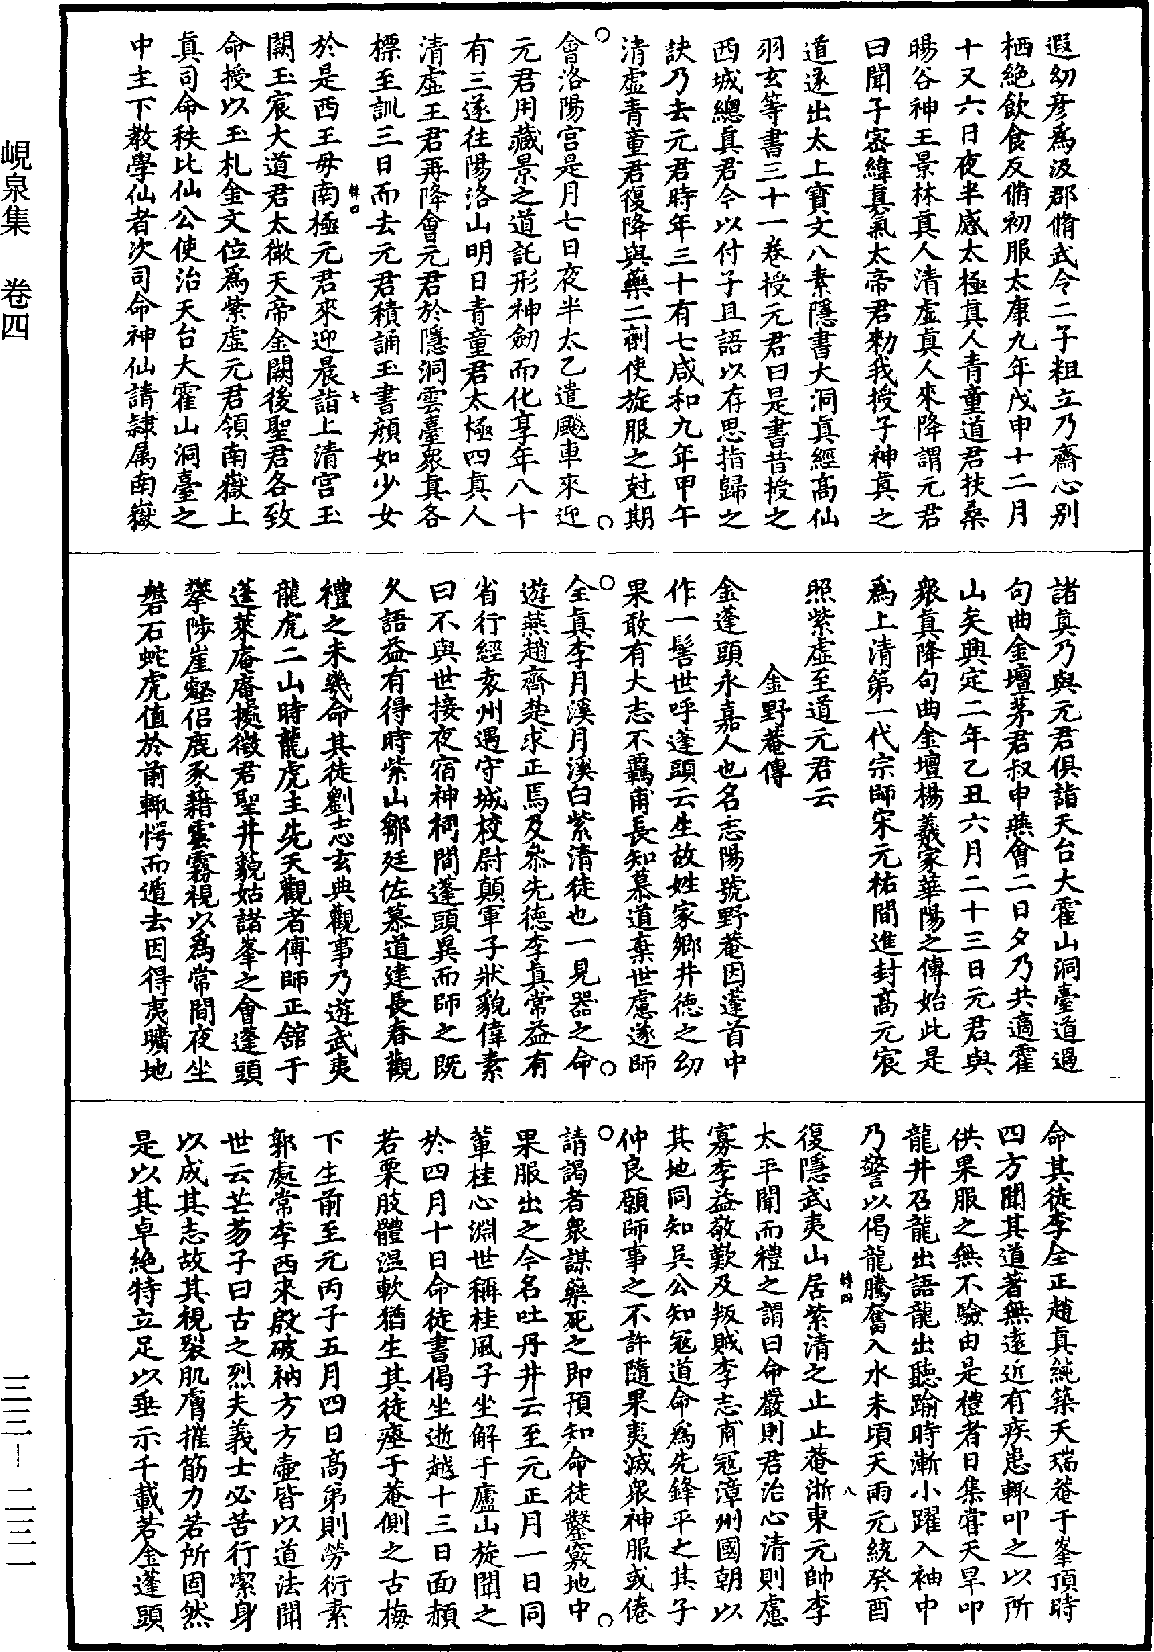 峴泉集　卷四
三三—二三二
遐幼彦爲汲郡脩武令二子粗立乃齋心别
栖絶飲食反脩初服太康九年戊申十二月
十又六日夜半感太極真人青童道君扶桑
暘谷神王景林真人清虚真人來降謂元君
曰聞子密緯真氣太帝君勑我授子神真之
道遂出太上寳文八素隱書大洞真經高仙
羽玄等書三十一卷授元君曰是書昔授之
西城總真君今以付子且語以存思指歸之
訣乃去元君時年三十有七咸和九年甲午
清虚青童君復降與藥二劑使旋服之尅期
會洛陽宫是月七日夜半太乙遣飈車來迎
元君用藏景之道託形神劒而化享年八十
有三遂往陽洛山明日青童君太極四真人
清虚王君再降會元君於隱洞雲臺衆真各
標至訓三日而去元君積誦玉書顔如少女
於是西王母南極元君來迎晨詣上清宫玉
闕玉宸大道君太微天帝金闕後聖君各致
命授以玉札金文位爲紫虚元君領南嶽上
真司命秩比仙公使治天台大霍山洞臺之
中主下教學仙者次司命神仙請隷属南嶽
諸真乃與元君俱詣天台大霍山洞臺道過
句曲金壇茅君叔申燕會二日夕乃共適霍
山矣興定二年乙丑六月二十三日元君與
衆真降句曲金壇楊羲家華陽之傳始此是
爲上清第一代宗師宋元祐間進封高元宸
照紫虚至道元君云
金野菴傳
金蓬頭永嘉人也名志陽號野菴因蓬首中
作一髻世呼蓬頭云生故姓家鄉井德之幼
果敢有大志不羈甫長知慕道棄世慮遂師
全真李月溪月溪白紫清徒也一見器之命
遊燕趙齊楚求正焉及叅先德李真常益有
省行經袁州遇守城校尉顛軍子狀貌偉素
曰不與世接夜宿神祠間蓬頭異而師之既
久語益有得時紫山鄒廷佐慕道建長春觀
禮之未幾命其徒劉志玄典觀事乃遊武夷
龍虎二山時龍虎主先天觀者傅師正舘于
蓬萊庵庵擬徵君聖井藐姑諸峯之會蓬頭
攀陟崖壑侣鹿豕藉雲霧視以爲常間夜坐
磐石蛇虎值於前輒愕而遁去因得夷曠地
命其徒李全正趙真純築天瑞菴于峯頂時
四方聞其道著無遠近有疾患輒叩之以所
供果服之無不驗由是禮者日集嘗天旱叩
龍井召龍出語龍出聽踰時漸小躍入袖中
乃警以偈龍騰奮入水未頃天雨元統癸酉
復隱武夷山居紫清之止止菴浙東元帥李
太平聞而禮之謂曰命嚴則君治心清則慮
寡李益敬歎及叛賊李志甫寇漳州國朝以
其地同知吴公知冦道命爲先鋒平之其子
仲良願師事之不許隨果夷滅衆神服或倦
請謁者衆謀藥死之即預知命徒鑿竅地中
果服出之今名吐丹井云至元正月一日同
葷桂心淵世稱桂風子坐解于廬山旋聞之
於四月十日命徒書偈坐逝越十三日面頳
若栗肢體温軟猶生其徒瘞于菴側之古梅
下生前至元丙子五月四日高弟則勞衍素
郭處常李西來殷破衲方方壺皆以道法聞
世云芒芴子曰古之烈夫義士必苦行潔身
以成其志故其視裂肌膚摧筋力若所固然
是以其卓絶特立足以垂示千載若金蓬頭